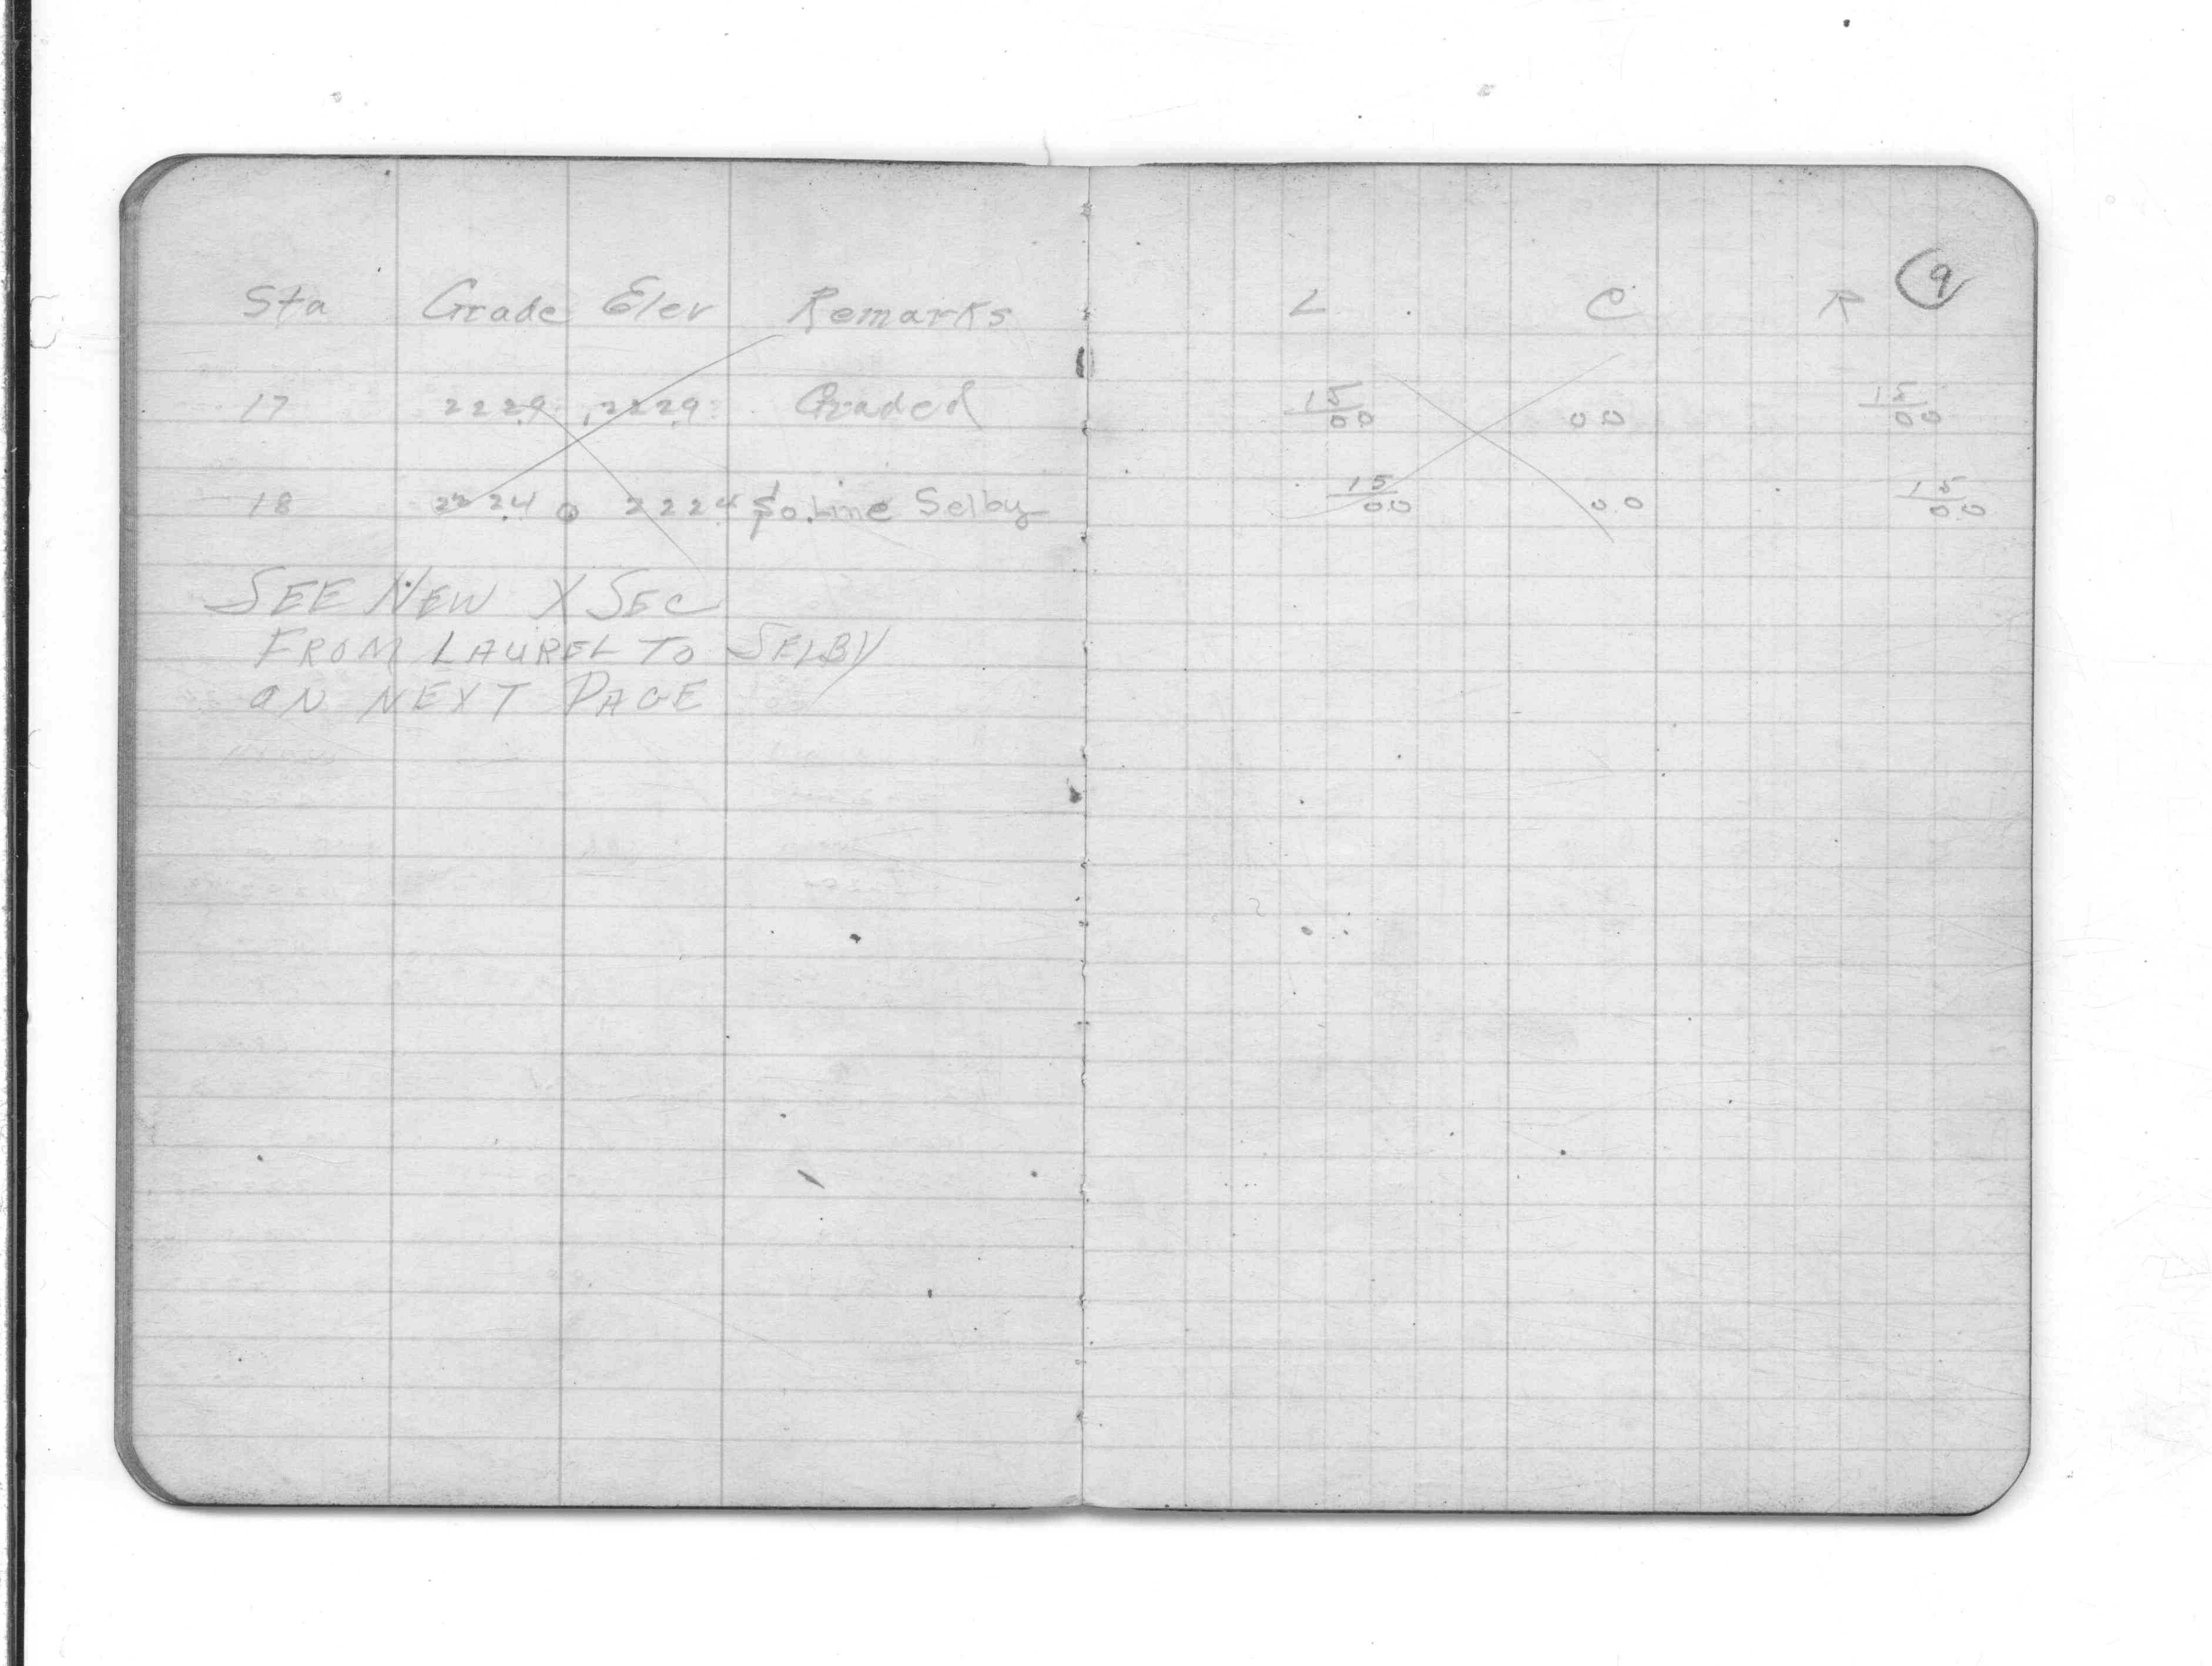 Sta Grade Elev Remarks
17 222.9 222.9 Graded
18 222.4 222.4 So. Line Selby
SEE NEW X SEC
FROM LAUREL TO SELBY
ON NEXT PAGE
9
L C R
15/00 00 15/00
15/00 00 15/00